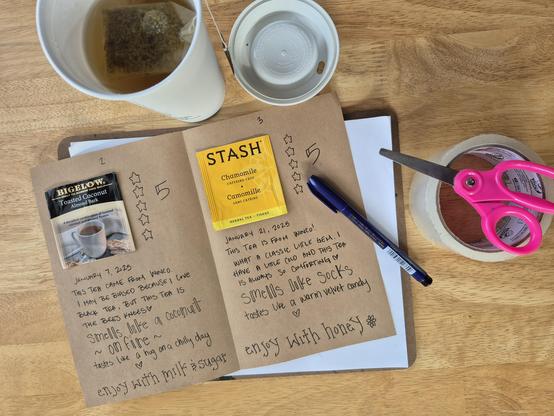 2
BIGELOW
Toasted Coconut
Almond Bark
5
JANUARY 7, 2023
THIS TEA CAME FROM WORK!
I MAY BE BIASED BECAUSE I LOVE
BLACK TEA, BUT THIS TEA IS
THE BEES KNEES
smells like a coconut
~ on fire ~
tastes like a hug on a chilly day
enjoy with milk & sugar
3
STASH
Chamomile
CAFFEINE FREE
Camomille
SANS CAFÉINE
HERBAL TEA • TISANE
5
JANUARY 21, 2023
THIS TEA IS FROM WORK!
WHAT A CLASSIC LITTLE GEM. I
HAVE A LITTLE COLD AND THIS TEA
IS ALWAYS SO COMFORTING
smells like socks
tastes like a warm velvet candy
enjoy with honey